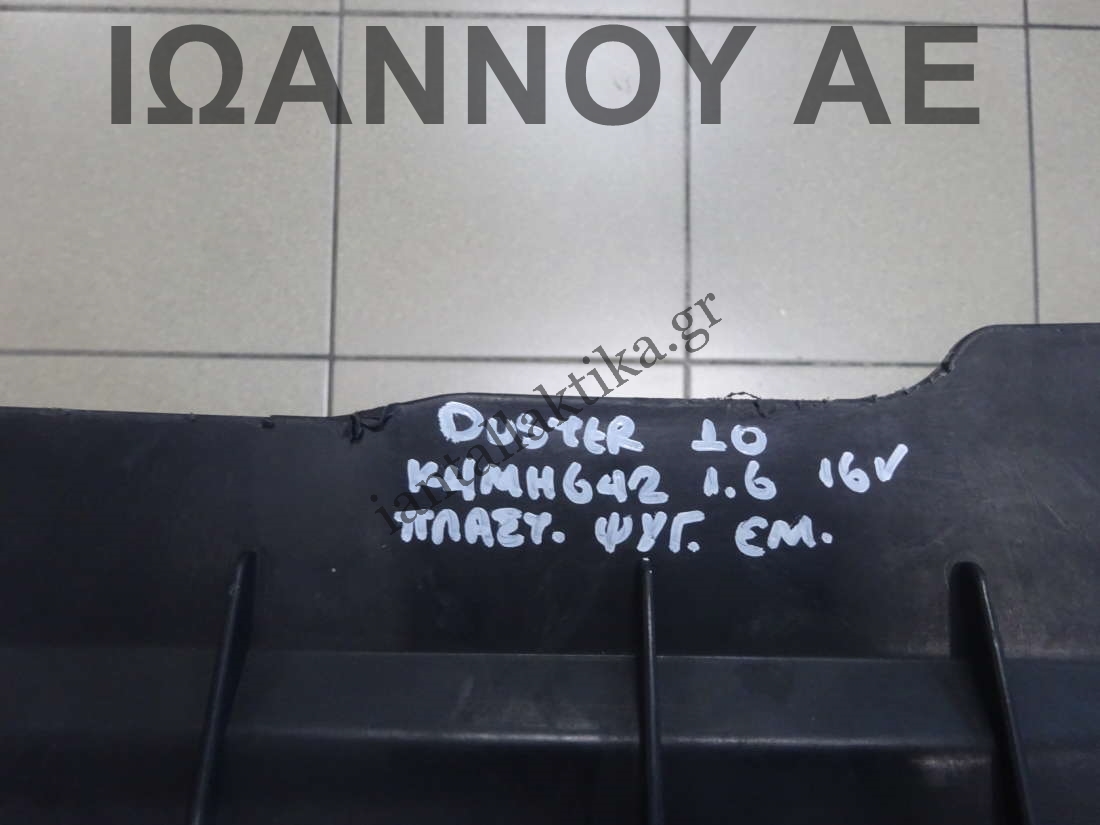 ΙΩΑΝΝΟΥ ΑΕ
iantallaktika.gr
DUSTER 10
K4MH642 1.6 16V
ΠΛΑΣΤ. ΨΥΓ. ΕΜ.